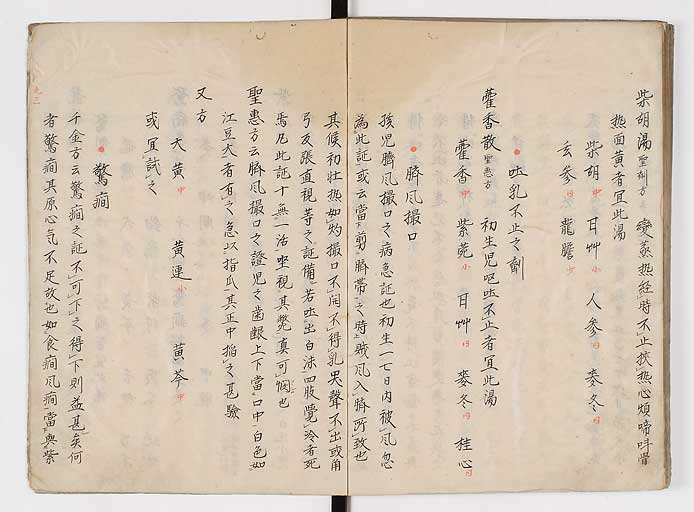 柴胡湯 聖剤方 變蒸熱經時不止挾熱心煩啼呌骨
熱面黄者宜此湯
柴胡 中 甘艸 小 人参 同 麥冬 同
玄参 龍膽 少
吐乳不止之劑
藿香散 聖惠方 初生児呕吐不止者宜此湯
藿香 中 紫菀 小 甘艸 同 麥冬 同 桂心 同
臍風撮口
孩児臍風撮口之病急証也初生一七日内被風忽
為此証或云當剪臍帶之時賊風入臍所致也
其候初壮熱如灼撮口不開不得乳哭聲不出或角
弓反張直視等之証備若吐出白沫四肢覺冷者死
焉凡此証十無一活坐視其斃真可憫也
聖惠方云臍風撮口之證児之歯齦上下當口中白色如
江豆大者有之急以指爪其正中掐之甚驗
又方
大黄 中 黄連 小 黄芩 中
或宜試之
驚癇
千金方云驚癇之証不可下之得下則益甚矣何
者驚癇其原心気不足故也如食癇風癇當與紫
九三